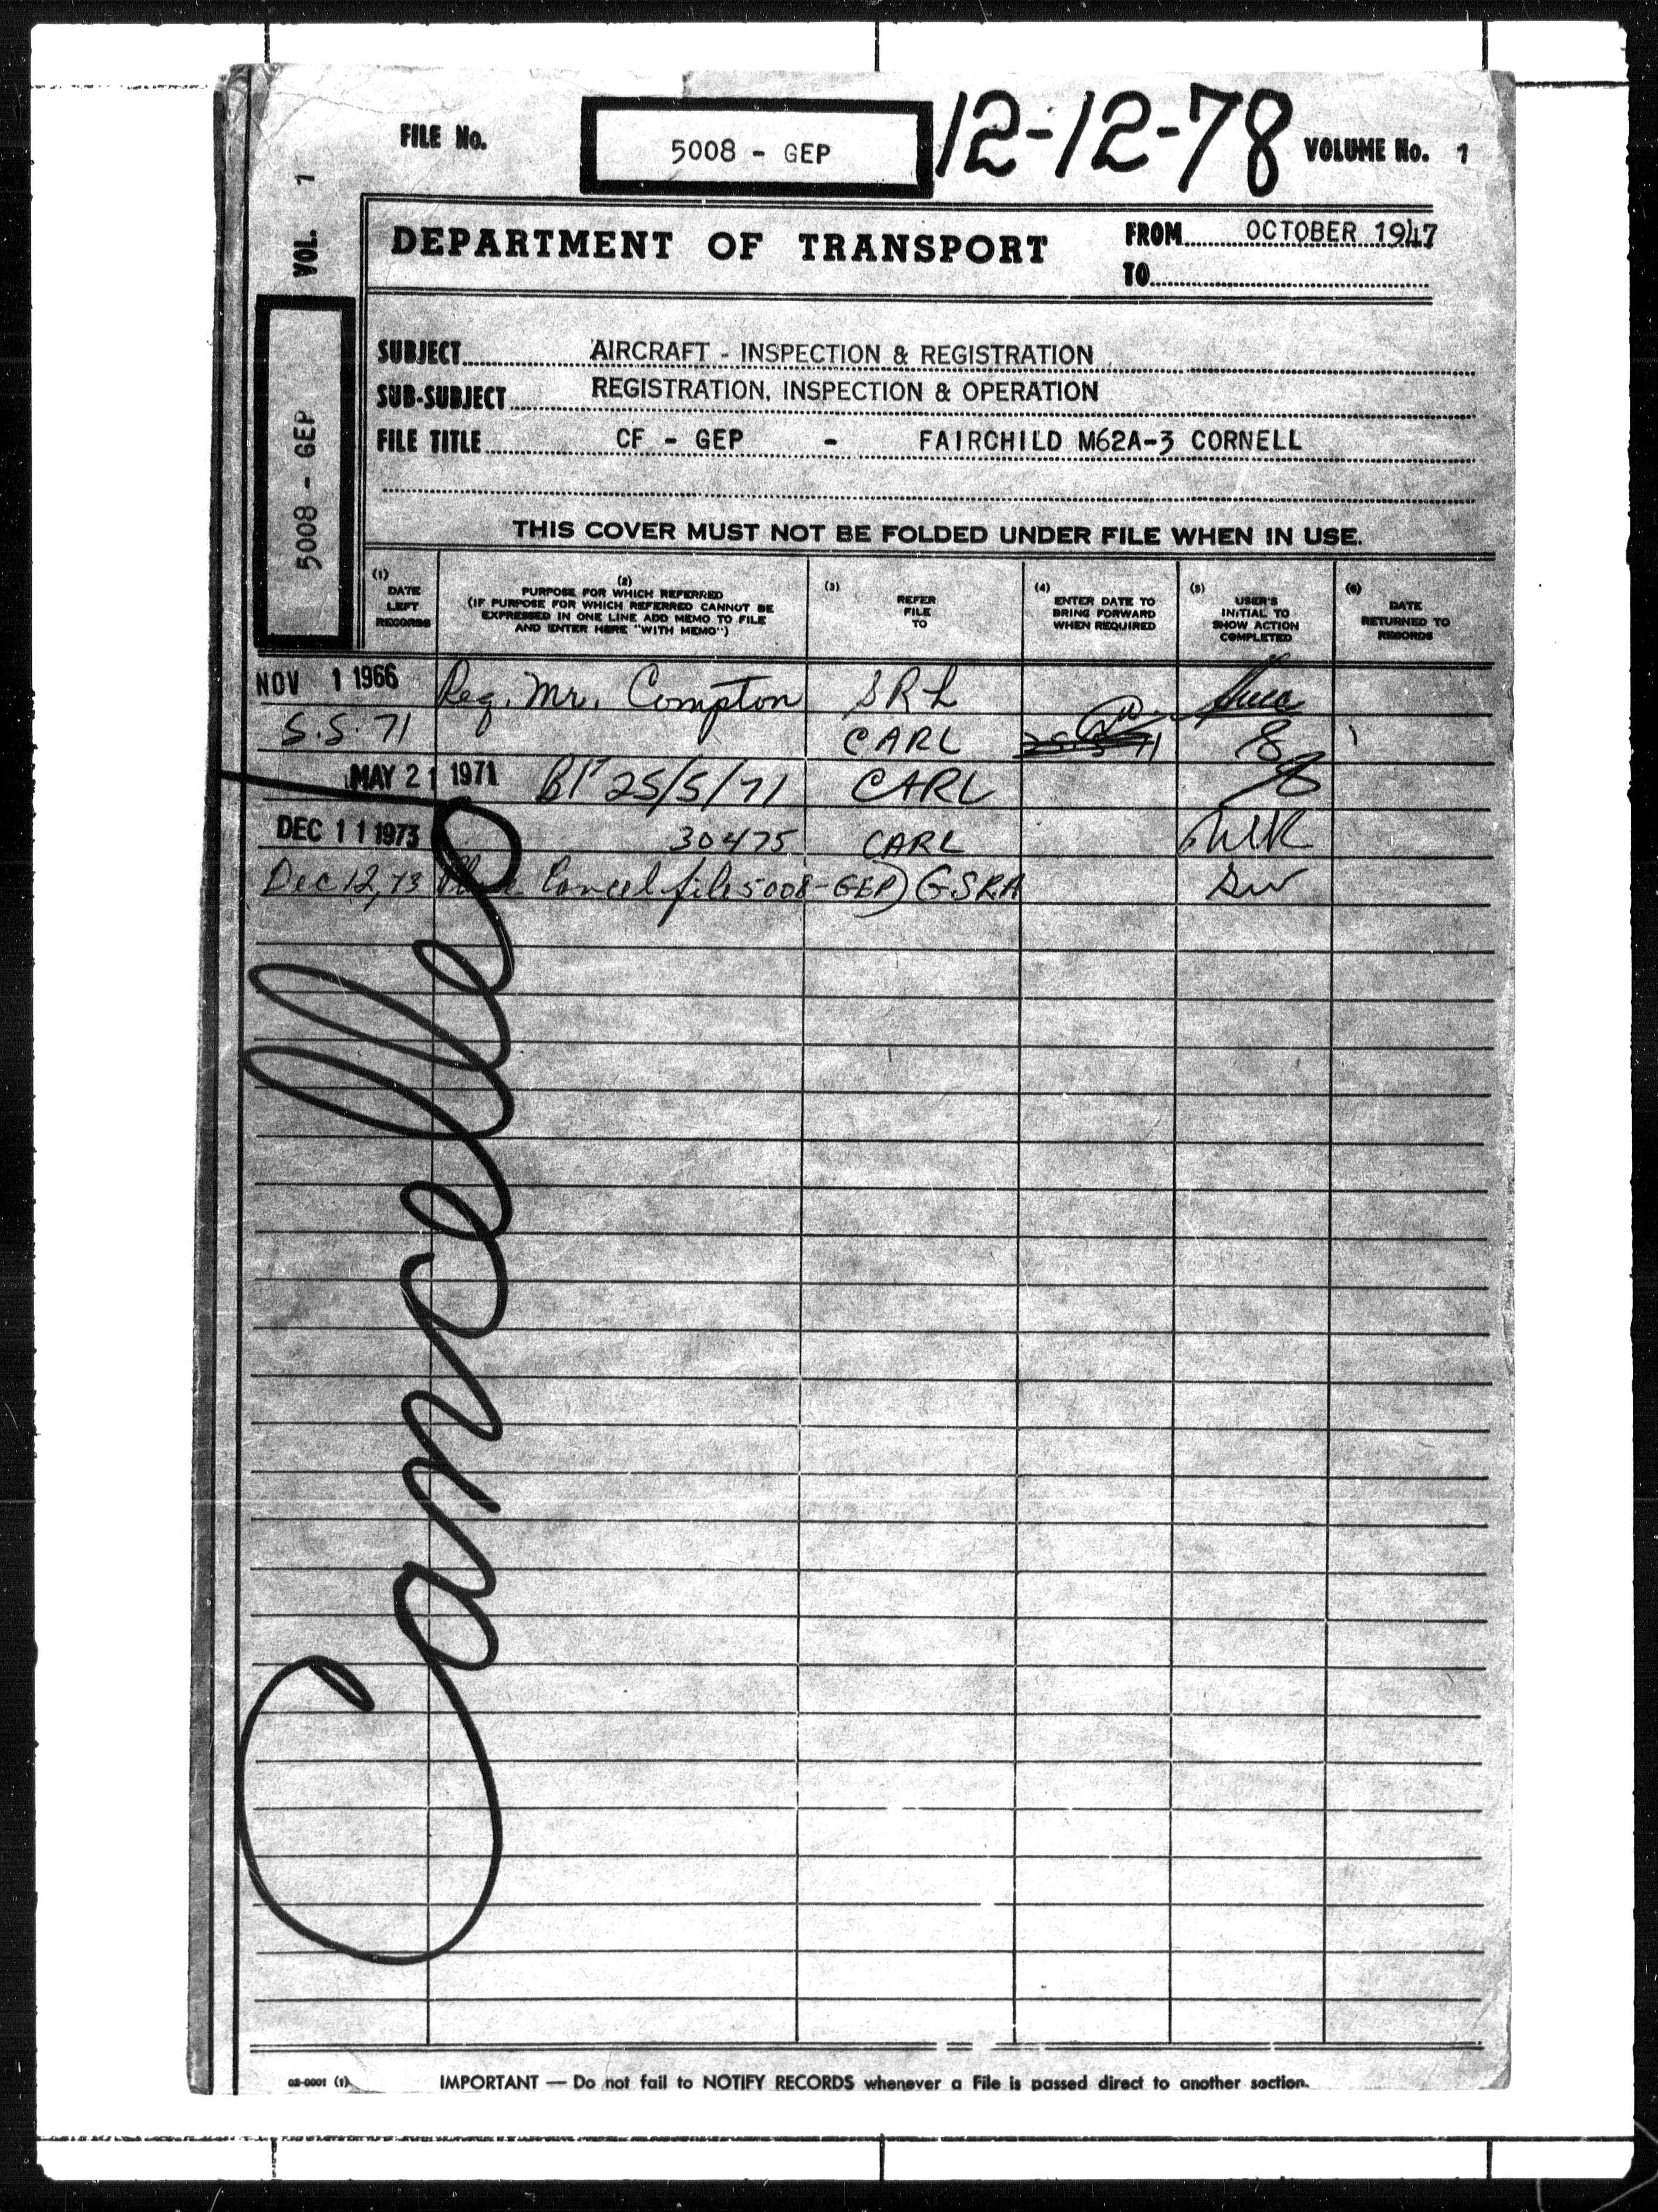 FILE No. 5008 - GEP 12-12-78 VOLUME No. 1
VOL. 1
5008 - GEP
DEPARTMENT OF TRANSPORT
FROM OCTOBER 1947
TO
SUBJECT AIRCRAFT - INSPECTION & REGISTRATION
SUB-SUBJECT REGISTRATION, INSPECTION & OPERATION
FILE TITLE CF - GEP - FAIRCHILD M62A-3 CORNELL
THIS COVER MUST NOT BE FOLDED UNDER FILE WHEN IN USE.
(1) DATE LEFT RECORDS
(2) PURPOSE FOR WHICH REFERRED
(IF PURPOSE FOR WHICH REFERRED CANNOT BE
EXPRESSED IN ONE LINE ADD MEMO TO FILE
AND ENTER HERE "WITH MEMO")
(3) REFER FILE TO
(4) ENTER DATE TO BRING FORWARD WHEN REQUIRED
(5) USER'S INITIAL TO SHOW ACTION COMPLETED
(6) DATE RETURNED TO RECORDS
NOV 1 1966 Req. Mr. Compton SRL
5.5.71 CARL
MAY 21 1971 BF 25/5/71 CARL
DEC 11 1973 30475 CARL
Dec 12, 73 Cancel file 5008-GEP) GSRA
Cancelled
08-0001 (1)
IMPORTANT — Do not fail to NOTIFY RECORDS whenever a File is passed direct to another section.